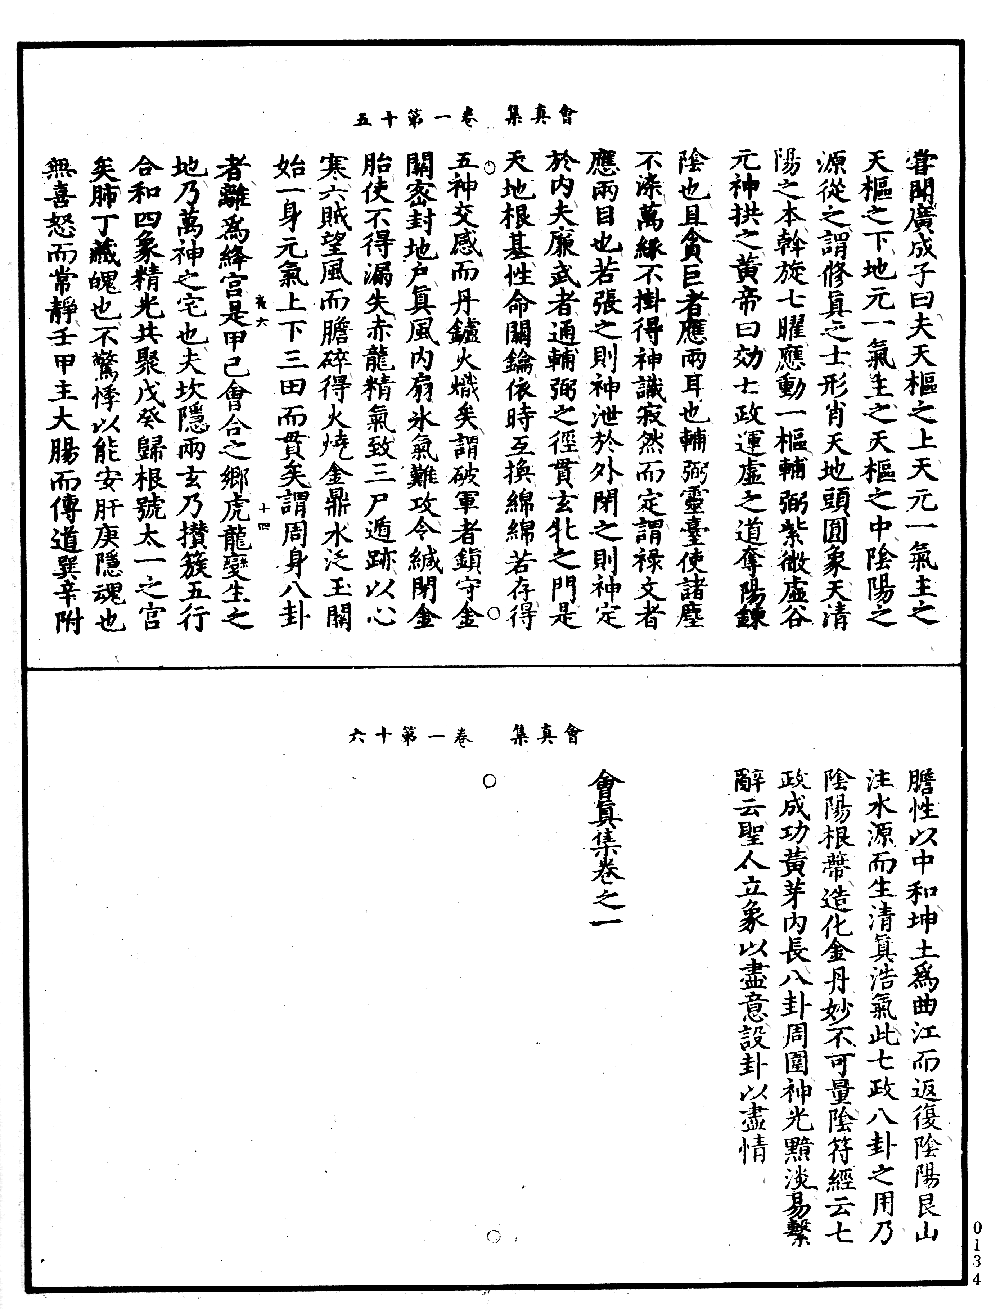 會真集　卷一第十五
甞聞廣成子曰夫天樞之上天元一氣主之
天樞之下地元一氣主之天樞之中陰陽之
源從之謂修真之士形肖天地頭圓象天清
陽之本斡旋七曜應動一樞輔弼紫微虛谷
元神拱之黃帝曰効士政運虛之道奪陽鍊
陰也且貪巨者應兩耳也輔弼靈臺使諸塵
不染萬緣不掛得神識寂然而定謂祿文者
應兩目也若張之則神泄於外閉之則神定
於内夫廉武者通輔弼之徑貫玄牝之門是
天地根基性命關鑰依時互換綿綿若存得
五神交感而丹鑪火熾矣謂破軍者鎮守金
關密封地戶真風内扇氷氣難攻令緘閉金
胎使不得漏失赤龍精氣致三尸遁跡以心
寒六賊望風而膽碎得火燒金鼎水泛玉關
始一身元氣上下三田而貫矣謂周身八卦
十四
者離爲絳宮是甲己會合之鄉虎龍變生之
地乃萬神之宅也夫坎隱兩玄乃攢簇五行
合和四象精光共聚戊癸歸根號太一之宮
矣肺丁藏魄也不驚悸以能安肝庚隱魂也
無喜怒而常靜壬甲主大腸而傳道巽辛附
會真集　卷一第十六
膽性以中和坤土爲曲江而返復陰陽艮山
注水源而生清真浩氣此七政八卦之用乃
陰陽根蔕造化金丹妙不可量陰符經云七
政成功黃芽内長八卦周圍神光黯淡易繫
辭云聖人立象以盡意設卦以盡情
會真集卷之一
0134